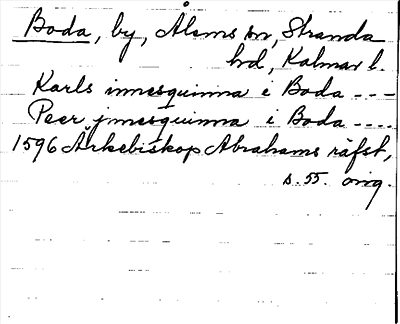 Boda, by, Ålems sn, Stranda
hd, Kalmar l.
Karls innesquinna i Boda ---
Peer jnnesquinna i Boda ----
1596 Ärkebiskop Abrahams räfst,
s. 55. orig.